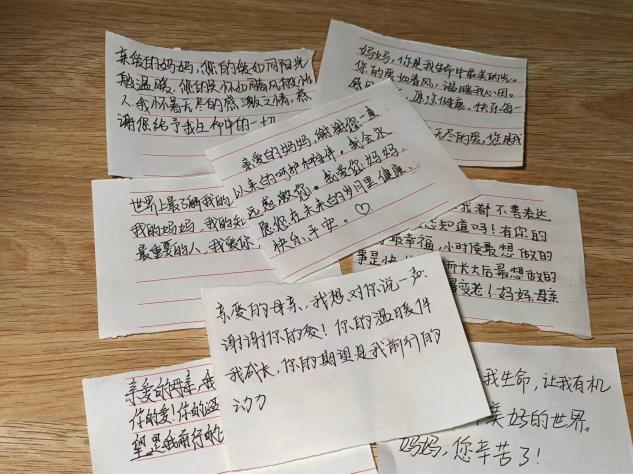 亲爱的妈妈,您的爱如同阳光
般温暖,您的关怀如
人,我怀着无尽的感激之情,感
谢您给予我生命中的一切
妈妈,你是我生命中最美的光。
您的爱如春风,温暖我心田。
愿您健康、快乐每一
无尽的爱,您是我
亲爱的妈妈,谢谢您一直
以来的呵护和陪伴。我永
远感激您。我爱您,妈妈。
愿您在未来的岁月里,健康、
快乐、平安。♡
世界上最了解我的
我的妈妈,我的
最重要的人,我爱你
我都不善表达
您知道吗!有你的
最幸福,小时候最想做的
事是快
而长大后最想做的
变老!妈妈,母亲
亲爱的母亲,我想对你说一声:
谢谢你的爱!你的温暖伴
我成长,你的期望是我前行的
动力
亲爱的母亲,我
你的爱!你的温
望是我前行的
我生命,让我有机
美好的世界。
妈妈,您辛苦了!